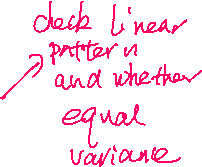 check linear
pattern
and whether
equal
variance